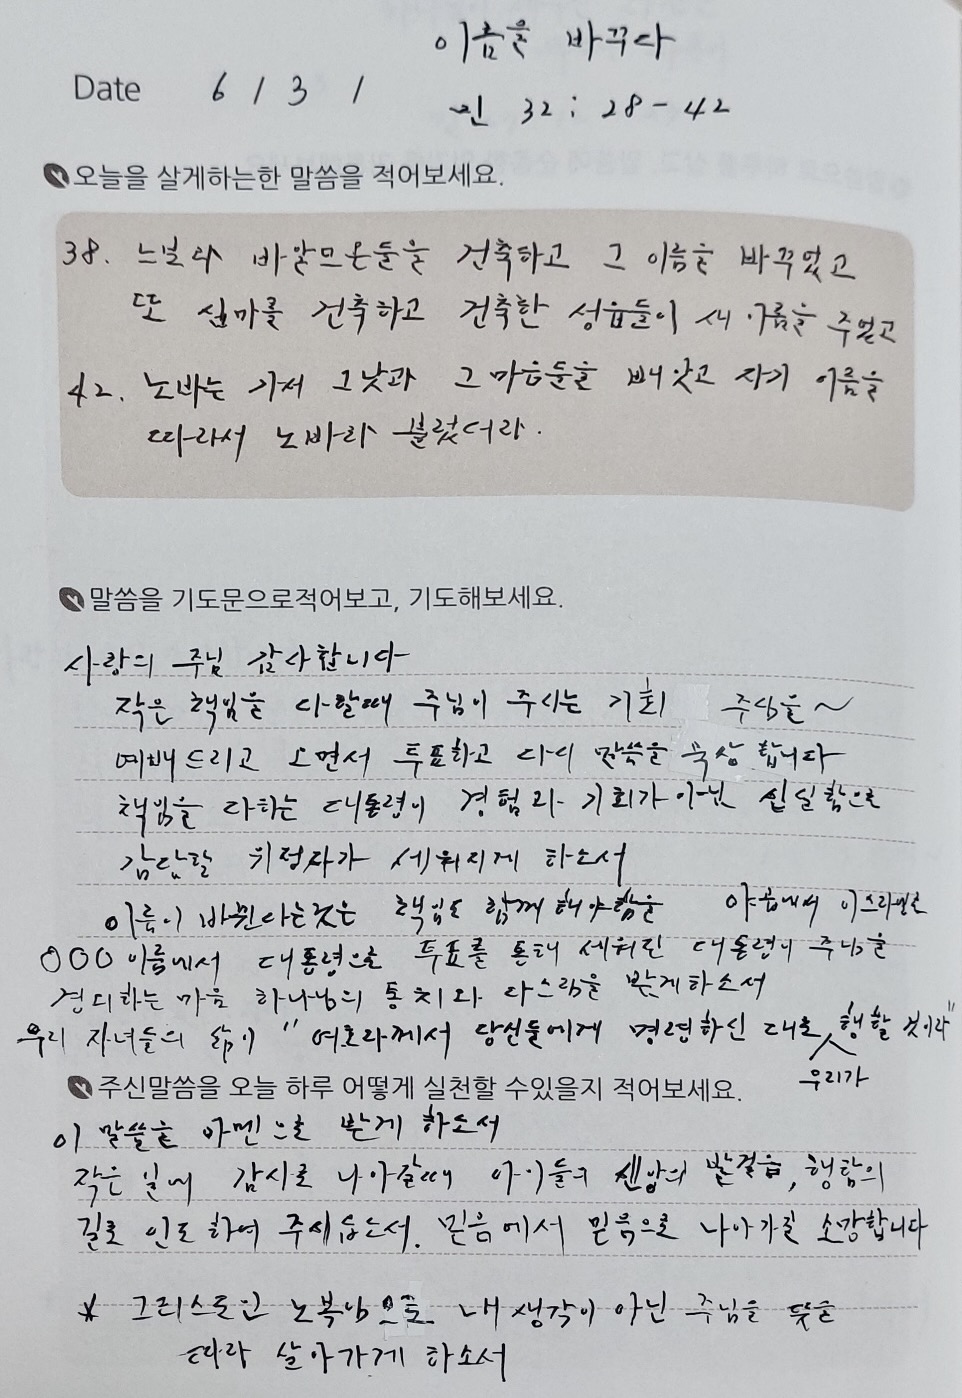 이름을 바꾸다
Date 6 / 3 /
민 32 : 28 - 42
오늘을 살게하는한 말씀을 적어보세요.
38. 느보와 바알므온들을 건축하고 그 이름을 바꾸었고
또 십마를 건축하고 건축한 성읍들이 새 이름을 주었고
42. 노바는 가서 그낫과 그 마을들을 빼앗고 자기 이름을
따라서 노바라 불렀더라.
말씀을 기도문으로적어보고, 기도해보세요.
사랑의 주님 감사합니다
작은 책임을 다할때 주님이 주시는 기회 주심을~
예배드리고 오면서 투표하고 다시 말씀을 묵상 합니다
책임을 다하는 대통령이 경험과 기회가 아닌 신실함으로
감당할 위정자가 세워지게 하소서
이름이 바뀐다는것은 책임도 함께 해야함을 야곱에서 이스라엘로
OOO 이름에서 대통령으로 투표를 통해 세워진 대통령이 주님을
경외하는 마음 하나님의 통치와 다스림을 받게하소서
우리 자녀들의 삶이 "여호와께서 당신들에게 명령하신 대로 우리가 행할 것이라"
주신말씀을 오늘 하루 어떻게 실천할 수있을지 적어보세요.
이 말씀을 아멘으로 받게 하소서
작은 일에 감사로 나아갈때 아이들의 신앙의 발걸음, 행함의
길로 인도하여 주시옵소서. 믿음에서 믿음으로 나아가길 소망합니다
* 그리스도인 노복남으로 내 생각이 아닌 주님을 뜻을
따라 살아가게 하소서